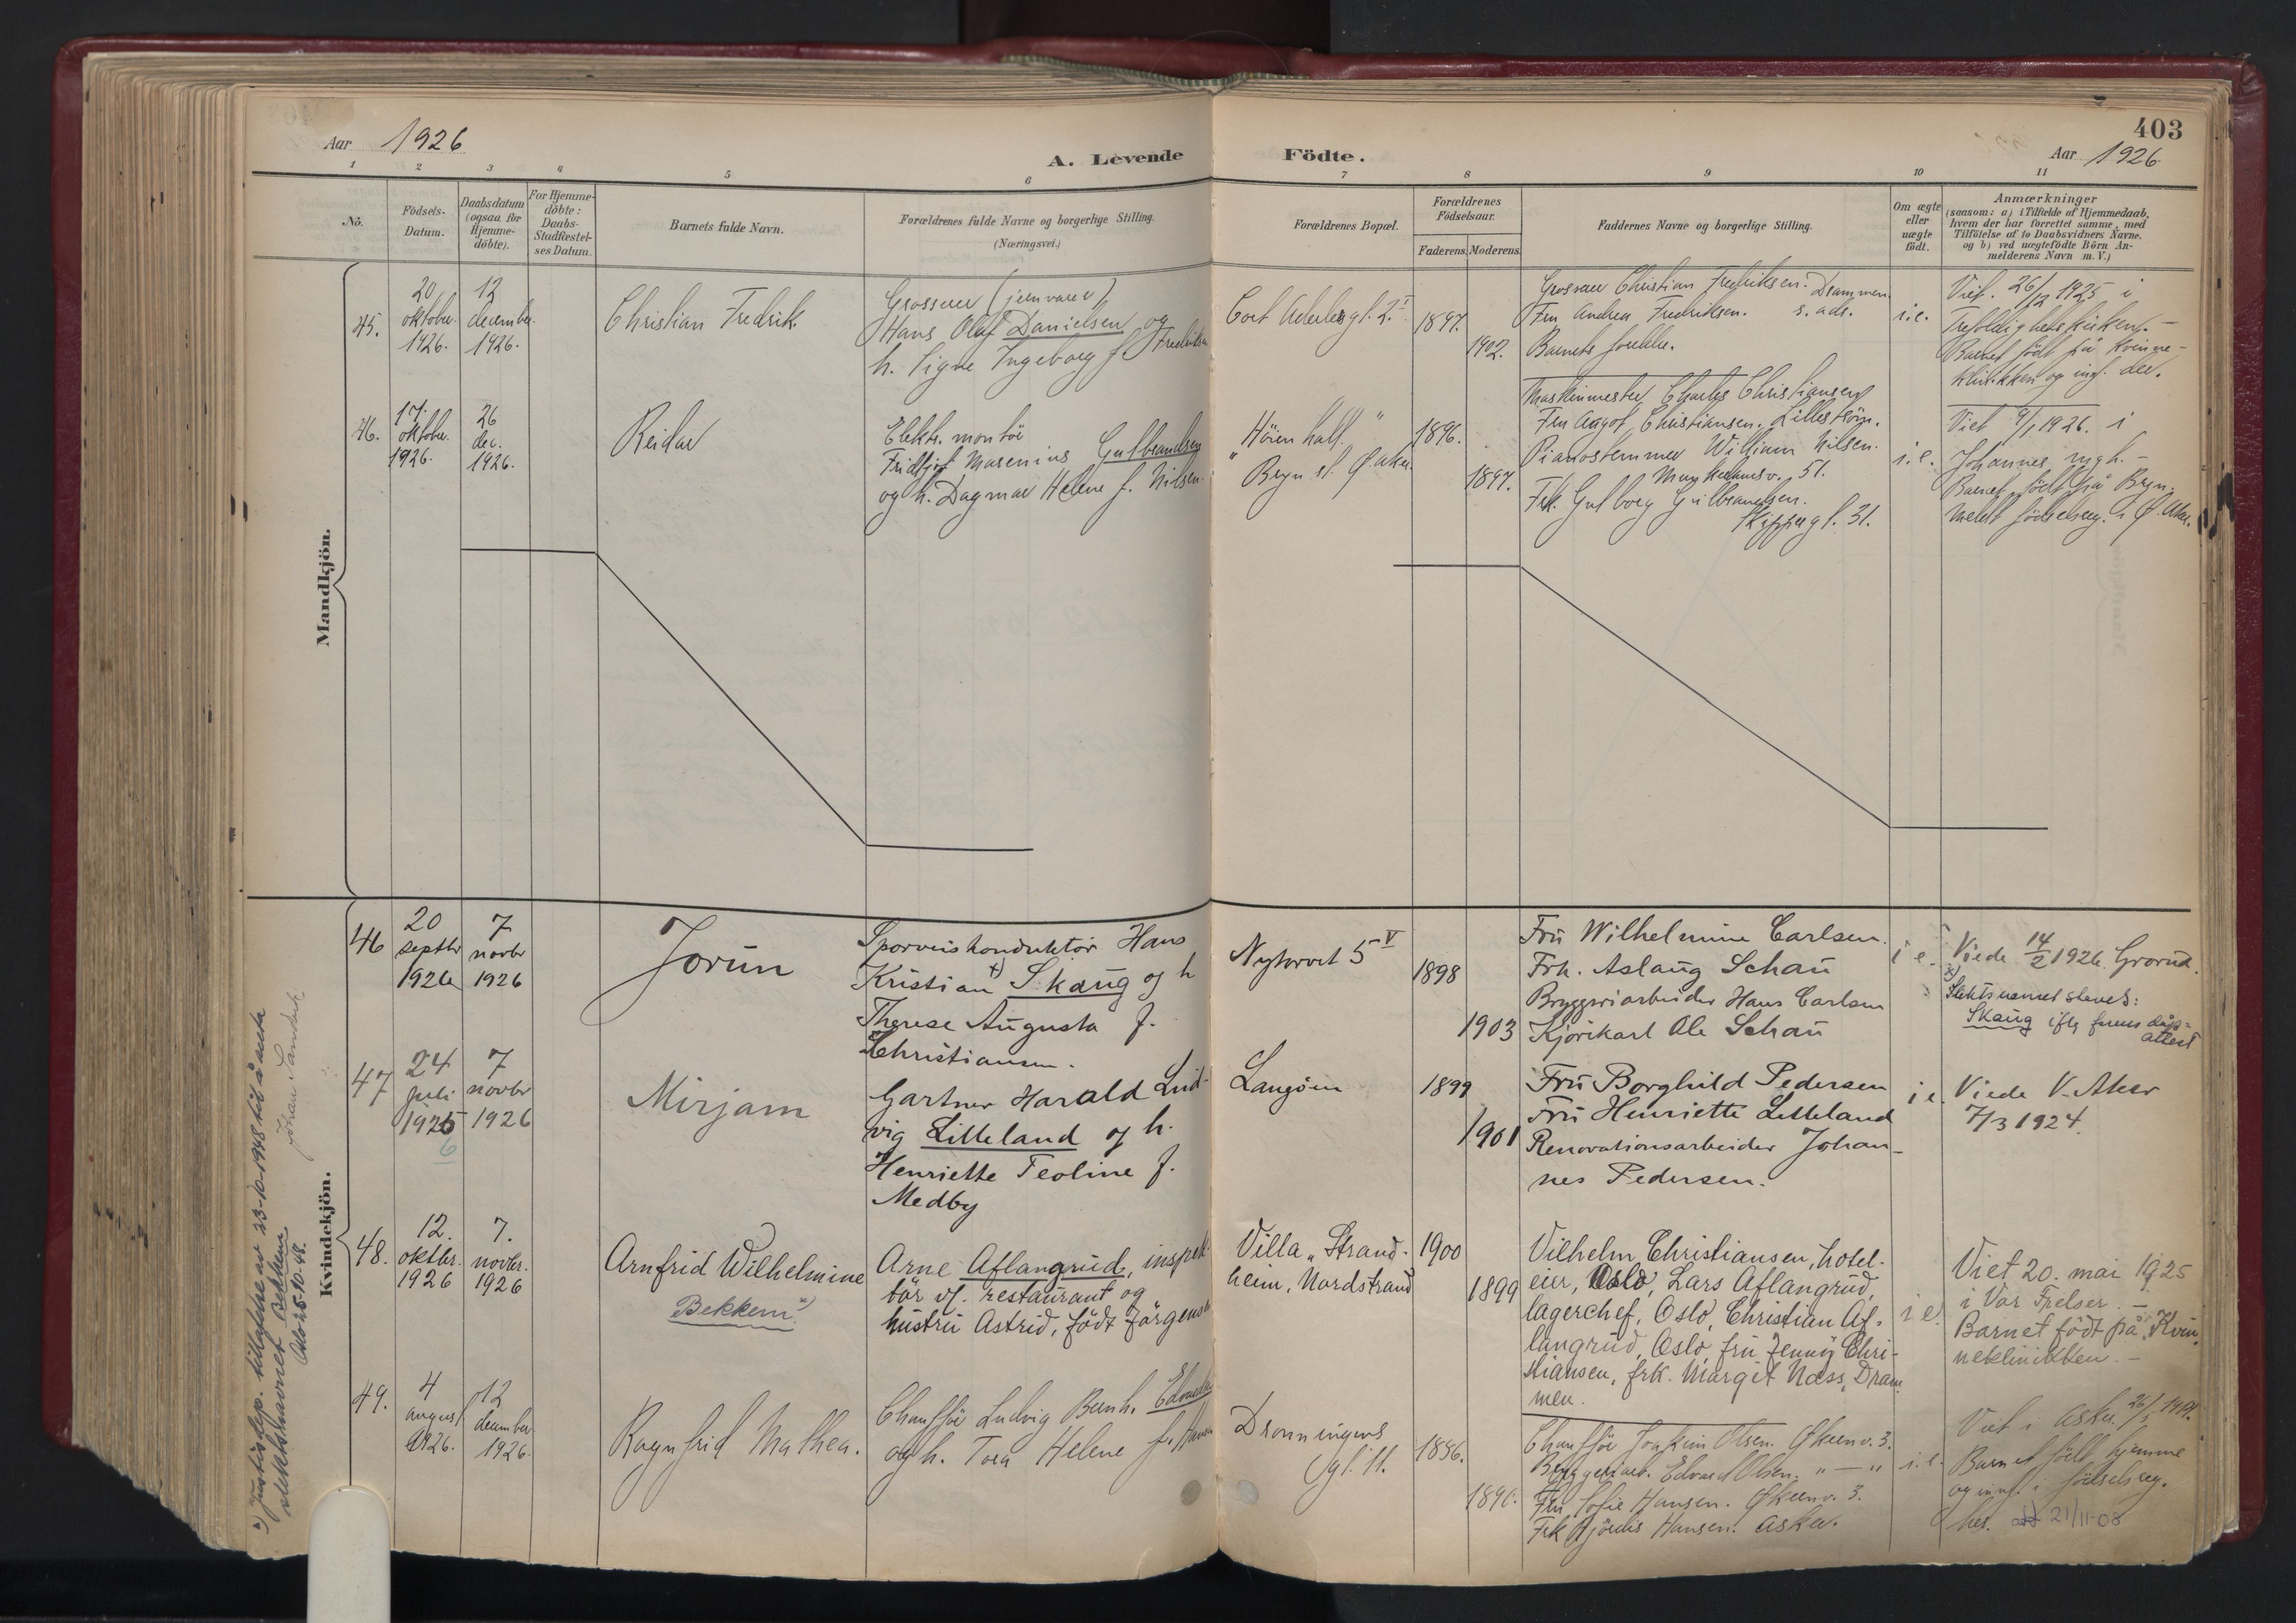 403
Aar 1926
A. Levende Födte.
Aar 1926
1 2 3 4 5 6 7 8 9 10 11
No.
Födsels-Datum.
Daabsdatum (ogsaa for Hjemme-döbte).
For Hjemme-döbte: Daabs-Stadfæstel-ses Datum.
Barnets fulde Navn.
Forældrenes fulde Navne og borgerlige Stilling.
(Næringsvei.)
Forældrenes Bopæl.
Forældrenes Födselsaar.
Faderens. Moderens.
Faddernes Navne og borgerlige Stilling.
Om ægte eller uægte födt.
Anmærkninger
(saasom: a) i Tilfælde af Hjemmedaab,
hvem der har forrettet samme, med
Tilföielse af to Daabsvidners Navne.
og b) ved uægtefödte Börn An-
melderens Navn m. V.)
Mandkjön.
45.
20
oktober.
1926.
12
december.
1926.
Christian Fredrik.
Grosserer (jernvarer)
Hans Olaf Danielsen og
h. Signe Ingeborg f. Fredriksen
Cort Adelersgt. 2 I
1897.
1902.
Grosserer Christian Fredriksen. Drammen.
Fru Andrea Fredriksen. s. ads.
Barnets foreldre.
i.e.
Viet. 26/12 1925 i
Trefoldighetskirken. –
Barnet födt på Kvinne-
klinikken og innf. der.
46.
17.
oktober.
1926.
26
dec.
1926.
Reidar
Elektr. montör
Fridtjof Marenius Gulbrandsen
og h. Dagmar Helene f. Nilsen.
"Hörenhall."
Bryn st. Ø. Aker.
1896.
1897.
Maskinmester Charles Christiansen
Fru Aagot Christiansen. Lilleström.
Pianostemmer William Nilsen.
Munkedamsv. 51.
Frk. Gulborg Gulbrandsen.
Skippergt. 31.
i.e.
Viet 9/1 1926. i
Johannes mgh. –
Barnet födt på Bryn.
Meldt födselsreg. i Ø. Aker.
Kvindekjön.
46
20
septbr
1926
7
novbr
1926
Jorun
Sporveiskonduktör Hans
Kristian x) Skaug og h
Therese Augusta f.
Christiansen.
Nytorvet 5 V
1898
1903
Fru Wilhelmine Carlsen.
Frk. Aslaug Schau
Bryggeriarbeider Hans Carlsen
Kjörekarl Ole Schau
i e.
Viede 14/2 1926. Grorud.
x) Slektsnavnet staves:
Skaug iflg farens dåps-
attest
47
24
juli
1926
6
7
novbr
1926
Mirjam
Gartner Harald Lud-
vig Lilleland og h.
Henriette Teoline f.
Medby
Langöen
1899
1901
Fru Borghild Pedersen
Fru Henriette Lilleland
Renovationsarbeider Johan-
nes Pedersen.
i e.
Viede V. Aker
7/3 1924.
48.
12.
oktbr.
1926
7.
novbr.
1926
Arnfrid Wilhelmine
Bekkem x)
Arne Aflangrud, inspek-
tör vf. restaurant og
hustru Astrid, födt Jörgensen
Villa „Strand-
heim, Nordstrand
1900
1899
Vilhelm Christiansen, hotel-
eier, Oslo, Lars Aflangrud,
lagerchef, Oslo, Christian Af-
langrud, Oslo, fru Jenny Chri-
stiansen, frk. Margit Næss, Dram-
men.
i e.
Viet 20. mai 1925
i Vår Frelser. –
Barnet födt på Kvin-
neklinikken. –
49.
4
august
1926.
12
december
1926.
Ragnfrid Mathea.
Chaufför Ludvig Bernh. Edvardsen
og h. Tora Helene f. Hansen
Dronningens
gt. 11.
1886.
1890.
Chaufför Joakim Olsen. Økernv. 3.
Bryggeriarb. Edvard Olsen. " — "
Fru Sofie Hansen. Økernv. 3.
Frk Hjördis Hansen. Asker.
i.e.
Viet i Asker. 26/5 1914.
Barnet födt hjemme
og innf. i födselsreg.
her. 21/11-08
x) Justisdep. tillatelse av 23-10-1948 til å anta
slektsnavnet Bekkem
Oslo 25-10-48.
Johan Sandvik